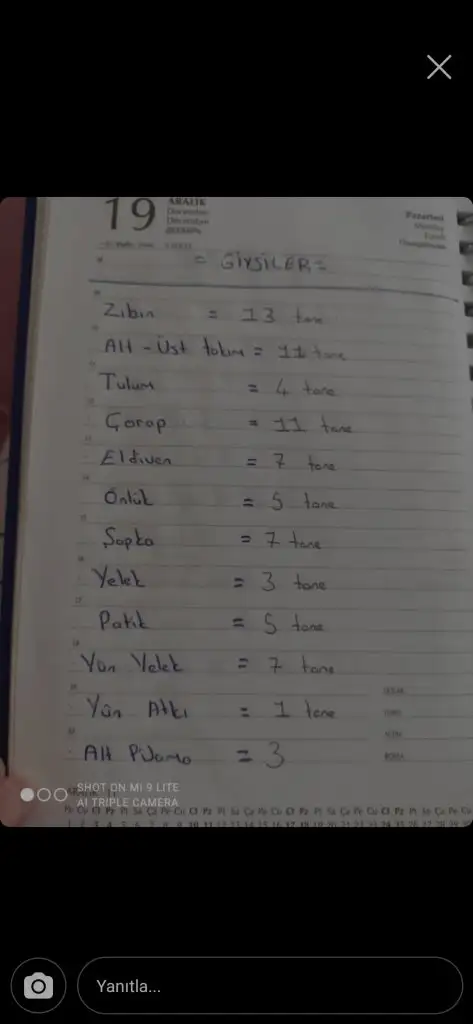 19 ARALIK
Pazartesi
= GİYSİLER =
Zıbın = 13 tane
Alt - Üst takım = 11 tane
Tulum = 4 tane
Çorap = 11 tane
Eldiven = 7 tane
Önlük = 5 tane
Şapka = 7 tane
Yelek = 3 tane
Patik = 5 tane
Yün Yelek = 7 tane
Yün Atkı = 1 tane
Alt Pijama = 3
SHOT ON MI 9 LITE
AI TRIPLE CAMERA
Yanıtla...